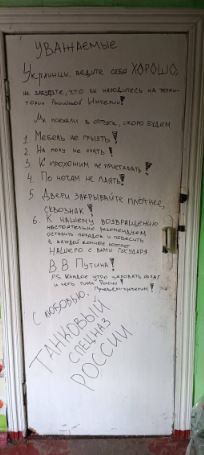 УВАЖАЕМЫЕ
Украинцы, ведите себя ХОРОШО,
не забудте, что вы находитесь на терри-
тории Российской Империи!
Мы поехали в отпуск, скоро будем
1 Мебель не грызть!
2. На полу не срать!
3. К прохожим не приставать!
4 По ночам не лаять!
5 Двери закрывайте плотнее,
сквозняк!
6. К нашему возвращению
настоятельно рекомендуем
оставить порядок и повесить
в каждой комнате
НАШЕГО с вами Государя
В В Путина!
PS Каждое утро целовать
и петь гимн России!
С любовью:
ТАНКОВЫЙ
СПЕЦНАЗ
РОССИИ